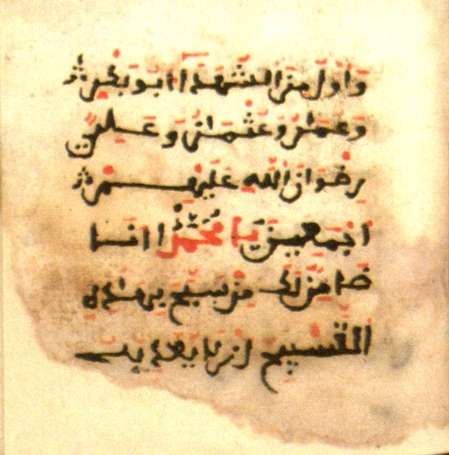 واول من الشهدا ابو بكر
وعمر وعثمان وعلي
رضوان الله عليهم
اجمعين يا محمد انا
ضامن لك من سبح بهاذه
التسبيح